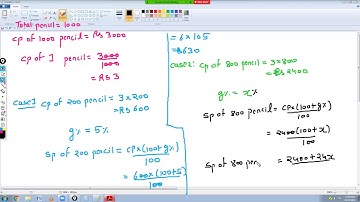 Total pencil = 1000
cp of 1000 pencil = Rs 3000
cp of 1 pencil = 3000/1000
= Rs 3
case1 cp of 200 pencil = 3 x 200
= Rs 600
g% = 5%
sp of 200 pencil = cp x (100 + g%)/100
= 600 x (100 + 5)/100
= 6 x 105
= Rs 630
case2: cp of 800 pencil = 3 x 800
= Rs 2400
g% = x%
sp of 800 pencil = cp x (100 + g%)/100
= 2400 (100 + x)/100
sp of 800 pen = 2400 + 24x